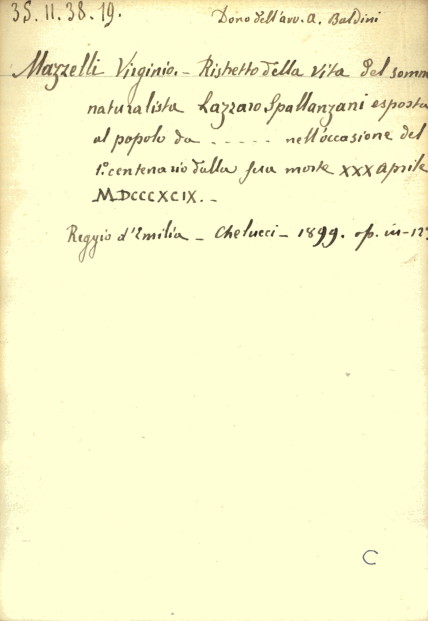 35. II. 38. 19.
Dono dell'avv. A. Baldini
Mazzelli Virginio. - Ristretto della vita del somm
naturalista Lazzaro Spallanzani esposta
al popolo da ..... nell'occasione del
1º centenario dalla sua morte XXX Aprile
MDCCCXCIX. -
Reggio d'Emilia - Chelucci - 1899. op. in-12
C